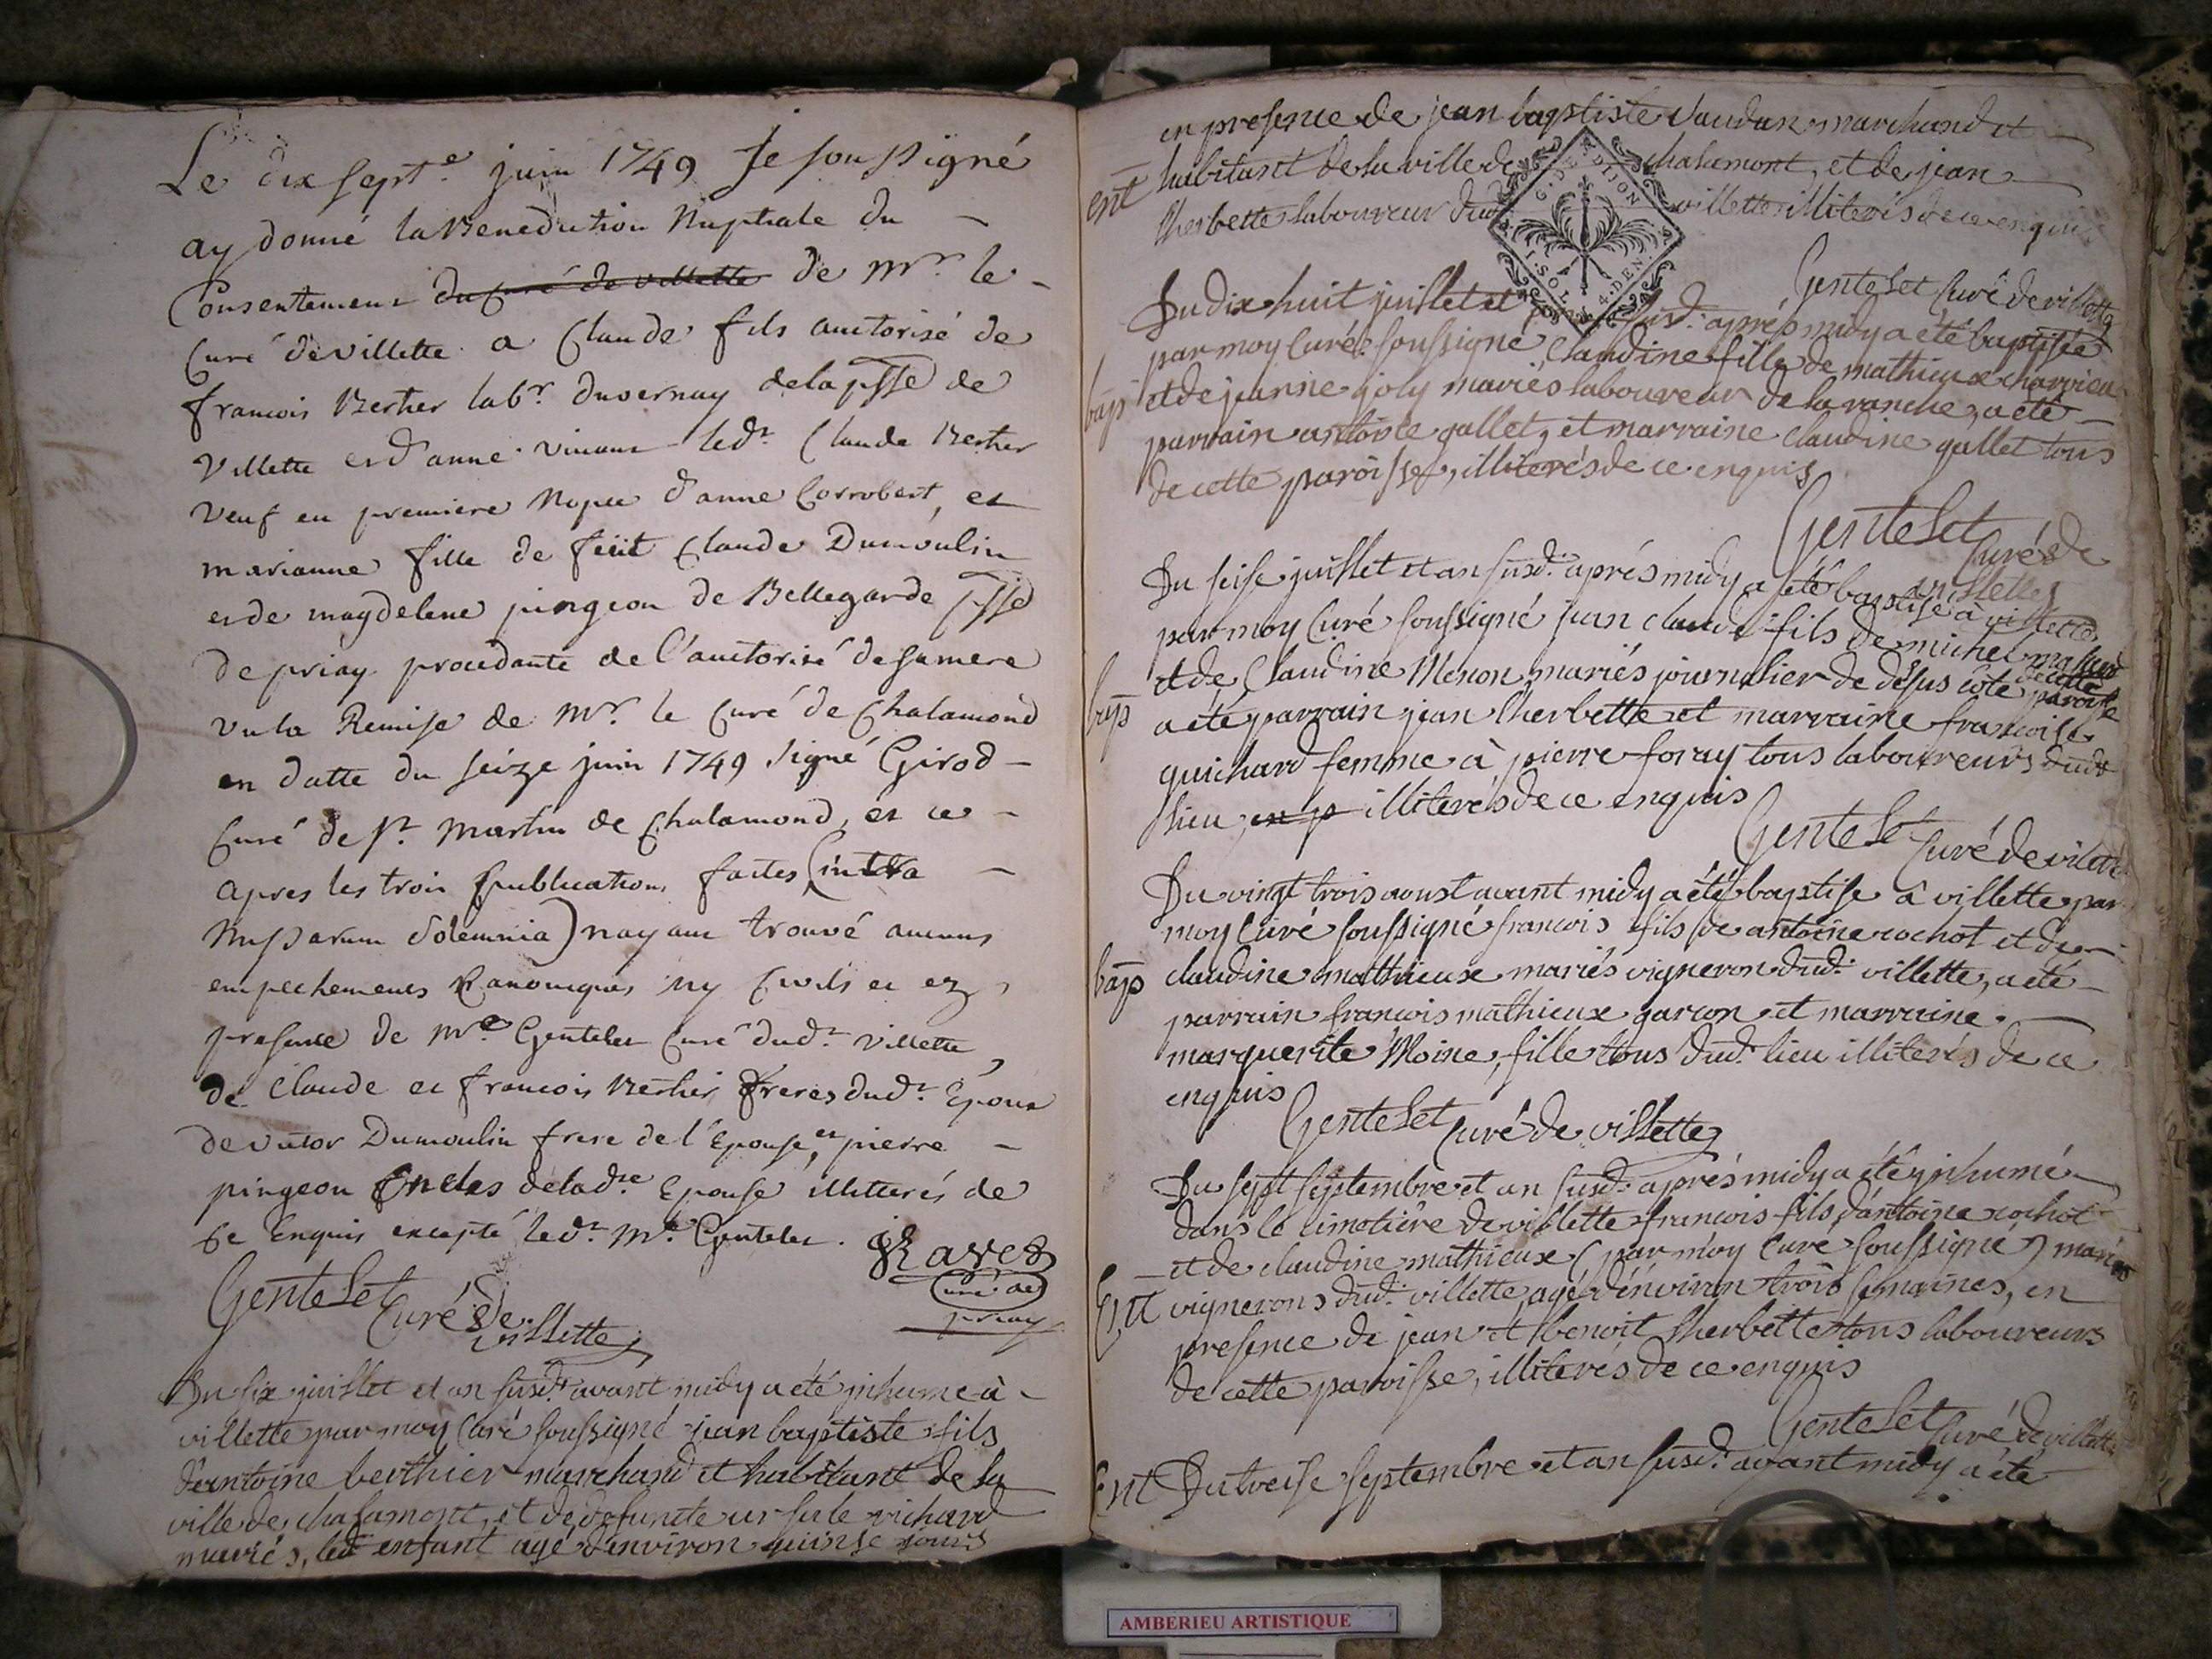 Le dix sept.e juin 1749 Je soussigné
ay donné la Benediction Nuptiale du
Consentement du Curé de villette de Mr. le
Curé de villette a Claude fils auctorisé de
francois Berthier labr. duvernay de la psse de
Villette et d'anne vincent ledt. Claude Berthier
Veuf en premiere Nopce d'anne Corrobert, et
marianne fille de feüt Claude Dumoulin
et de magdelene pingeon de Bellegarde psse
de priay procedante de l'auctorité de sa mere
vu la Remise de Mr. le Curé de Chalamond
en datte du seize juin 1749 signé Girod
Curé de st. Martin de Chalamond, et ce
apres les trois publications faites (intra
Missarum Solemnia) n'ayant trouvé aucuns
empechemens Canoniques ny Civils et ez
presence de Mre Gentelet Curé dudt. Villette,
de Claude et francois Berthier freres dudt. Epoux
de victor Dumoulin frere de l'Epouse, et pierre
pingeon oncles de lade. Epouse illitterés de
ce Enquis excepté ledt. Mre Gentelet.
Ravet
Curé de
priay
Gentelet
Curé de
villette
Du six juillet et an susdt. avant midy a été inhumé à
villette par moy Curé soussigné jean baptiste fils
d'antoine berthier marchand et habitant de la
ville de chalamont, et de defuncte ursule richard
mariés, led. enfant agé d'environ quinse jours
en presence de jean baptiste vaudan marchand et
ent habitant de la ville de chalamont, et de jean
lherbette laboureur dud. villette illiterés de ce enquis
G. DE DIJON
1. SOL. 4. DEN.
Gentelet Curé de villette
Du dix huit juillet et an susd. après midy a été baptisée
par moy Curé soussigné Claudine fille de mathieu charvieu
bap et de jeanne joly mariés laboureur de la ranche, a été
parrain antoine gallet, et marraine claudine gallet tous
de cette paroisse, illiterés de ce enquis
Gentelet
Curé de
villette
Du seise juillet et an susd. après midy a été baptisé à villette
par moy Curé soussigné jean claude fils de michel
et de Claudine Menon mariés journalier de desus cote de cette paroisse
bap a été parrain jean lherbette et marraine francoise
guichard femme à pierre foray tous laboureurs dudt
lieu, en p illiterés de ce enquis
Gentelet Curé de villette
Du vingt trois aoust avant midy a été baptisé à villette par
moy Curé soussigné francois fils de antoine rochot et de
bap claudine mathieux mariés vigneron dud. villette, a été
parrain francois mathieux garcon et marraine
marguerite Moine, fille tous dud. lieu illiterés de ce
enquis
Gentelet Curé de villette
Du sept septembre et an susd. après midy a été inhumé
dans le cimetière de villette francois fils d'antoine rochot
et de claudine mathieux (par moy Curé soussigné) mariés
Ent vignerons dud. villette agé d'environ trois semaines, en
presence de jean et benoit lherbette tous laboureurs
de cette paroisse, illiterés de ce enquis
Gentelet Curé de villette
Ent Du treise septembre et an susd. avant midy a été
AMBERIEU ARTISTIQUE